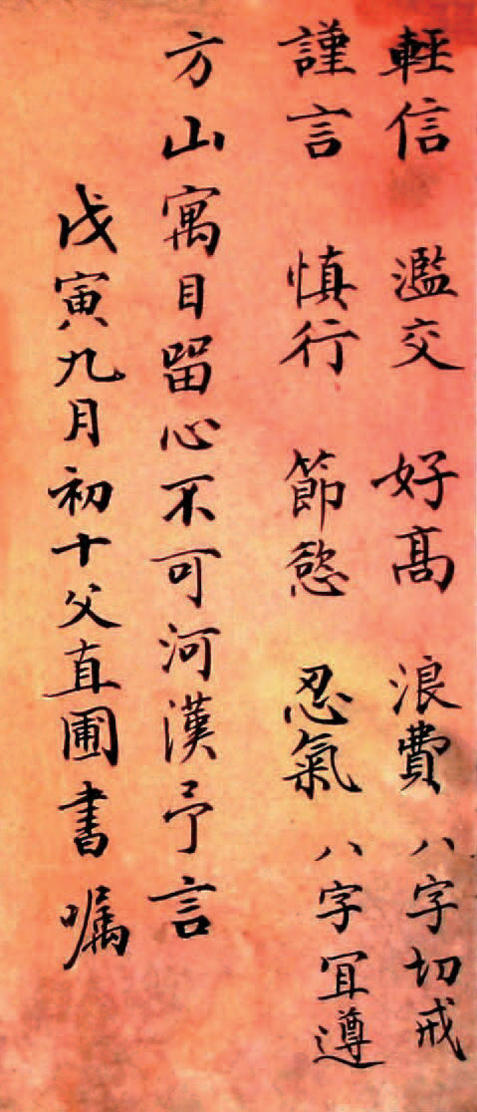 輕信 濫交 好髙 浪費 八字切戒
謹言 慎行 節慾 忍氣 八字冝遵
方山寓目留心不可河漢予言
戊寅九月初十父直圃書嘱